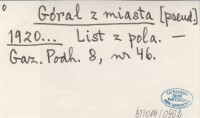 Góral z miasta [pseud.]
1920... List z pola. —
Gaz. Podh. 8, nr 46.